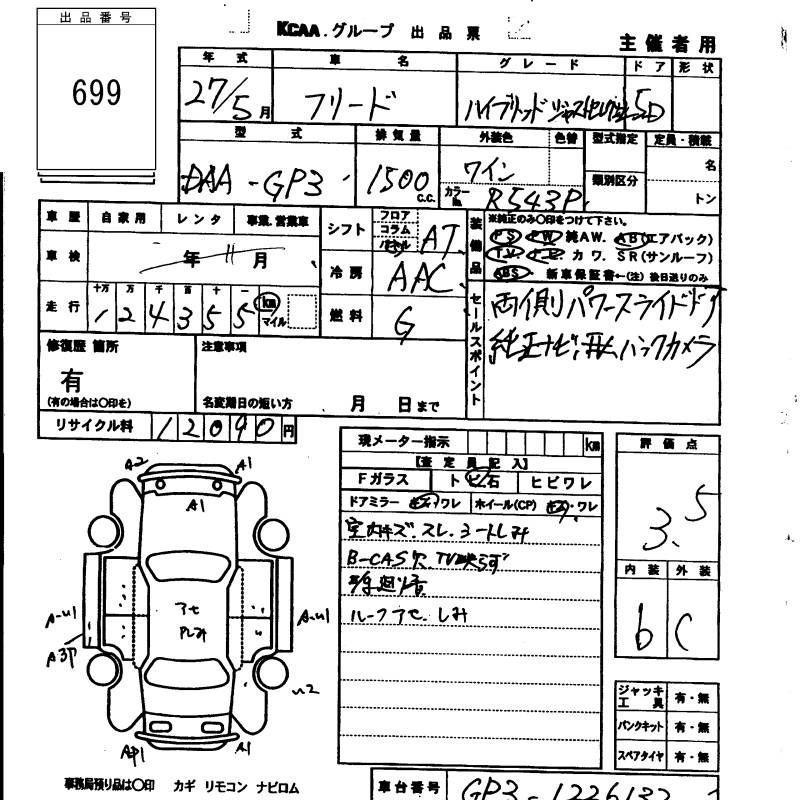 出品番号
699
KCAA.グループ 出品票
主催者用
年式 車名 グレード ドア 形状
27/5月 フリード ハイブリッド ジャストセレクション 5D
型式 排気量 外装色 色替 型式指定 定員・積載
DAA-GP3 1500 c.c. ワイン 類別区分 名
カラーNo. R543P トン
車歴 自家用 レンタ 事業.営業車
シフト フロア コラム AT
装備品 ※純正のみ○印をつけて下さい。
PS PW 純AW. AB(エアバック)
TV ナビ カワ. SR(サンルーフ)
ABS 新車保証書←(注)後日送りのみ
車検 年 11月
冷房 AAC
走行 十万 万 千 百 十 一
124355 km マイル
燃料 G
セールスポイント
両側パワースライドドア
純正ナビ, バックカメラ
修復歴 箇所 注意事項
有
(有の場合は○印を) 名変期日の短い方 月 日まで
リサイクル料 12090円
現メーター指示 km
【査定員記入】
Fガラス トビ石 ヒビワレ
ドアミラー キズ・ワレ ホイール(CP) キズ・ワレ
室内キズ.スレ.シートしみ
B-CAS欠.TV映らず
ルーフアセ.しみ
評価点
3.5
内装 外装
b C
ジャッキ工具 有・無
パンクキット 有・無
スペアタイヤ 有・無
A2 A1
A1
アセ
Pしみ
A-U1 A-U1
A3P
U2
AP1 A1
事務局預り品は○印 カギ リモコン ナビロム
車台番号 GP3-1226132